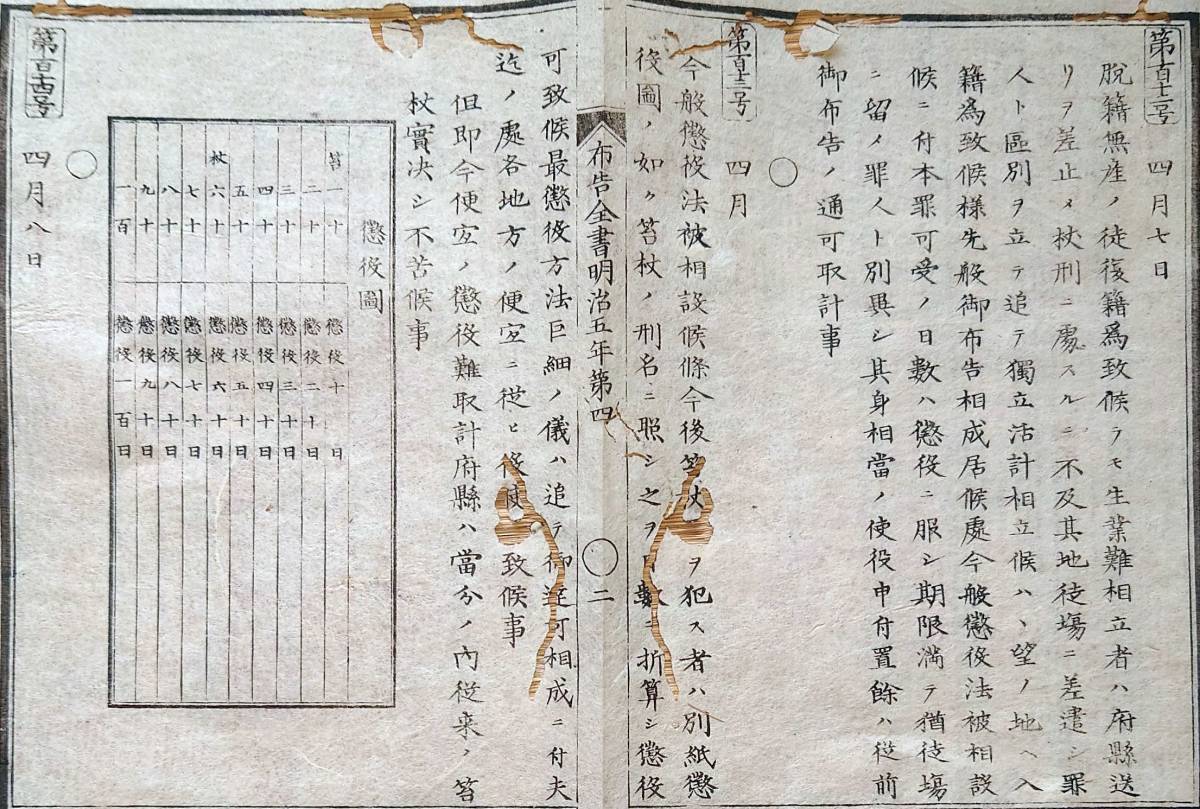 第百十二号 四月七日
脱籍無産ノ徒復籍爲致候テモ生業難相立者ハ府縣送
リヲ差止メ杖刑ニ處スルニ不及其地徒場ニ差遣シ罪
人ト區別ヲ立テ追テ獨立活計相立候ハヽ望ノ地ヘ入
籍為致候様先般御布告相成居候處今般懲役法被相設
候ニ付本罪可受ノ日數ハ懲役ニ服シ期限満テ猶徒場
ニ留メ罪人ト別異シ其身相當ノ使役申付置餘ハ従前
御布告ノ通可取計事
○
第百十三号 四月
今般懲役法被相設候條今後笞杖ヲ犯ス者ハ別紙懲
役圖ノ如ク笞杖ノ刑名ニ照シ之ヲ日數ニ折算シ懲役
布告全書明治五年第四 ○ 二
可致候最懲役方法巨細ノ儀ハ追テ御達可相成ニ付夫
迄ノ處各地方ノ便宜ニ従ヒ役使致候事
但即今便宜ノ懲役難取計府縣ハ當分ノ内従来ノ笞
杖實决シ不苦候事
懲役圖
笞一十 懲役十日
二十 懲役二十日
三十 懲役三十日
四十 懲役四十日
五十 懲役五十日
杖六十 懲役六十日
七十 懲役七十日
八十 懲役八十日
九十 懲役九十日
一百 懲役一百日
○
第百十四号 四月八日